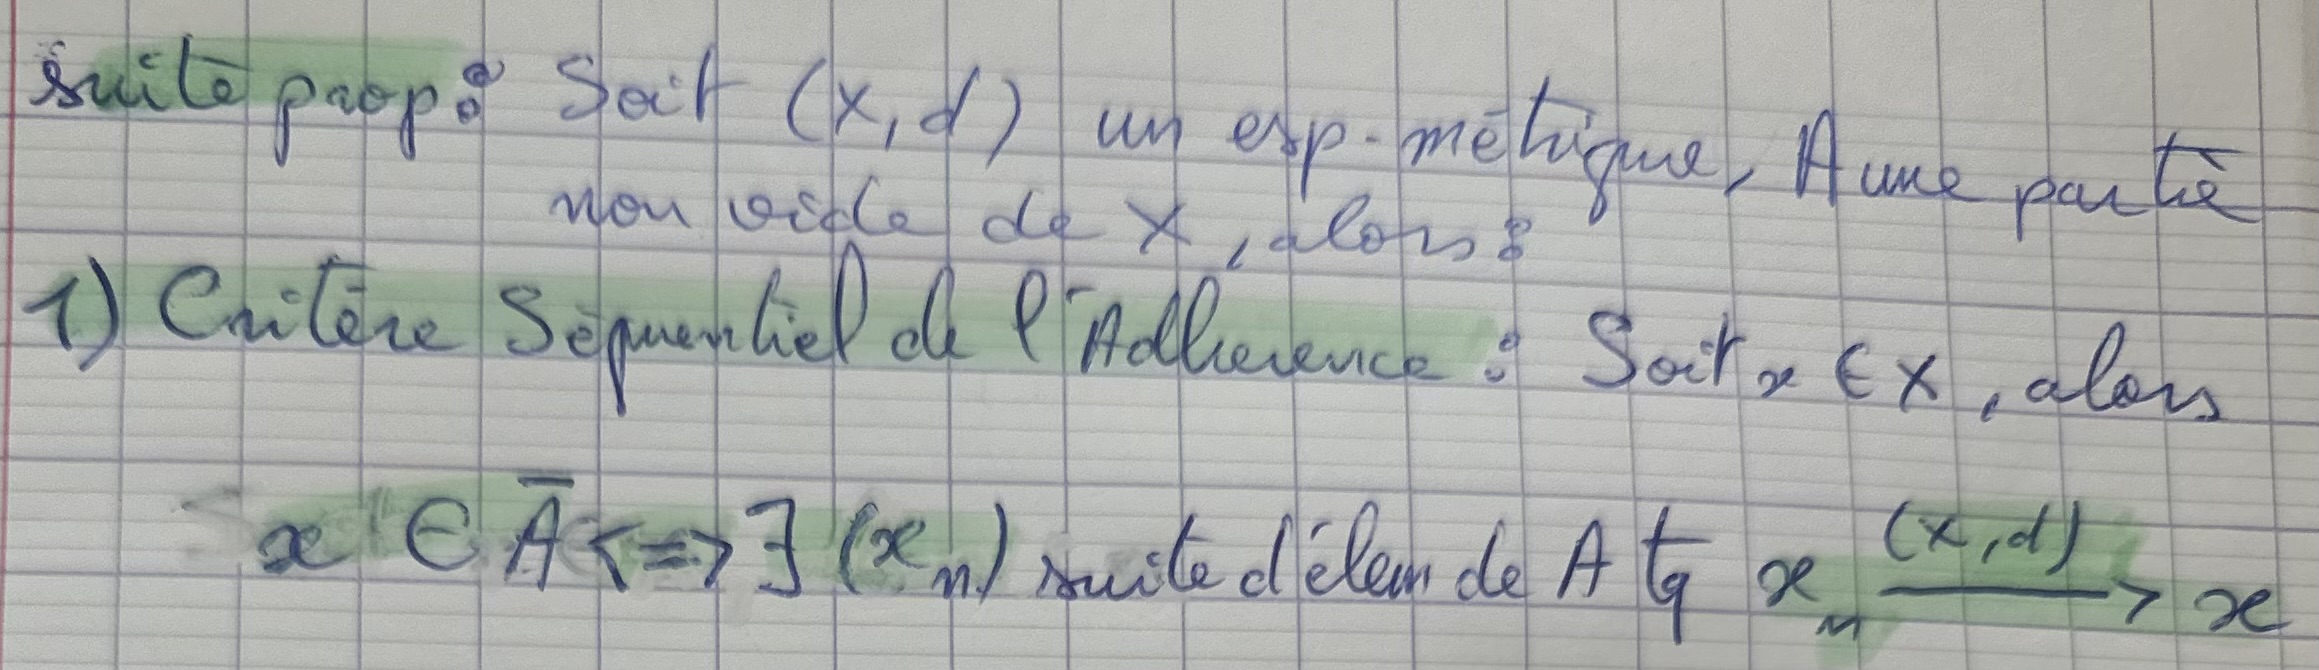 suite prop : Soit (X, d) un esp. métrique, A une partie
non vide de X, alors :
1) Critère Séquentiel de l'Adherence : Soit x ∈ X, alors
x ∈ A̅ <=> ∃ (xₙ) suite d'élem de A tq xₙ —(X,d)→ x